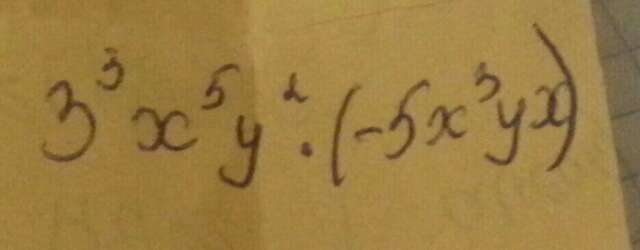 3³x⁵y²·(-5x³yx)